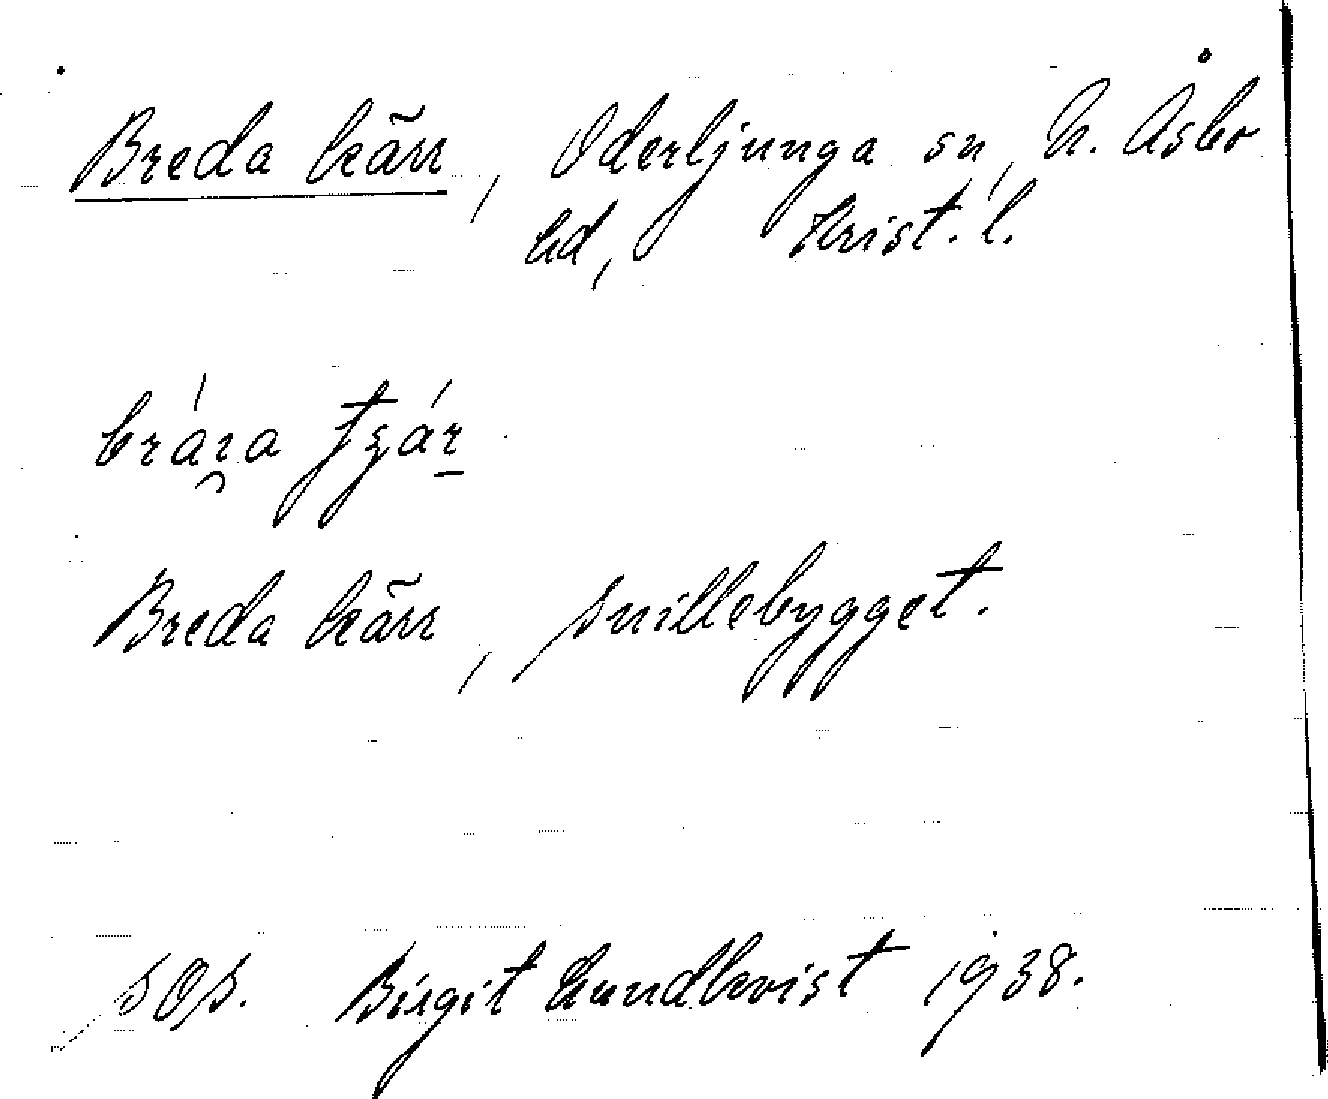 Breda kärr, Oderljunga sn, N. Åsbo
hd, Krist. l.
Breda kärr, snillebygget.
SOS. Birgit Lundkvist 1938.